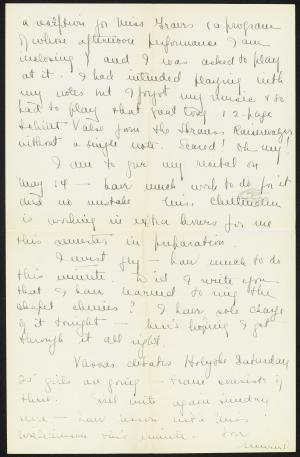 a reception for Miss (a program
of whose afternoon performance I am
inclosing) and I was asked to play
at it. I had intended playing with
my notes but I forgot my music & so
had to play that 12-page
Schütt Valse from the Strauss
without a single note. Scared! Oh my!
I am to give my recital on
May 14 – have much work to do for it
and no mistake. Miss Chittenden
is working in extra hours for me
this semester in preparation.
I must fly – have much to do
this minute. Did I write you
that I have learned to ring the
chapel chimes? I have sole charge
of it tonight – here's hoping I get
through it all right.
Vassar debates Holyoke Saturday
25 girls are going – consists of
three. Will write again Sunday
sure – have lesson with Miss
this minute.